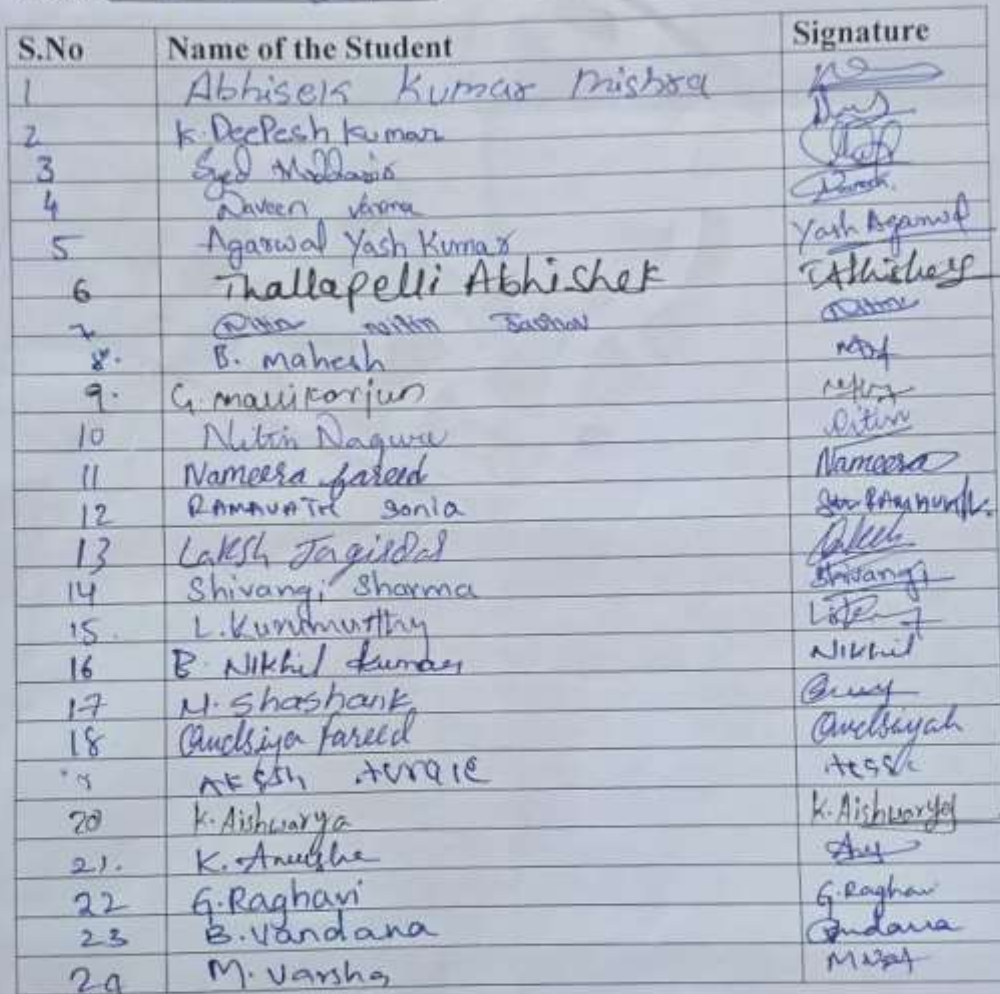 S.No Name of the Student Signature
1 Abhisek Kumar Mishra
2 K. DeePesh kumar
3 Syed
4 Naveen varma
5 Agarwal Yash Kumar Yash Agarwal
6 Thallapelli Abhishek T Abhishek
7 nitin
8. B. mahesh
9. G. mallikarjun
10 Nitin Nitin
11 Nameera fareed Nameera
12 RAMAVATH Sonia
13 Laksh
14 Shivangi Sharma Shivangi
15. L. Kurumurthy
16 B. Nikhil kumar Nikhil
17 M. Shashank
18 Qudsiya fareed Qudsiyah
20 K. Aishwarya K. Aishwarya
21. K. Anusha
22 G. Raghavi G. Raghavi
23 B. Vandana Vandana
24 M. Varsha